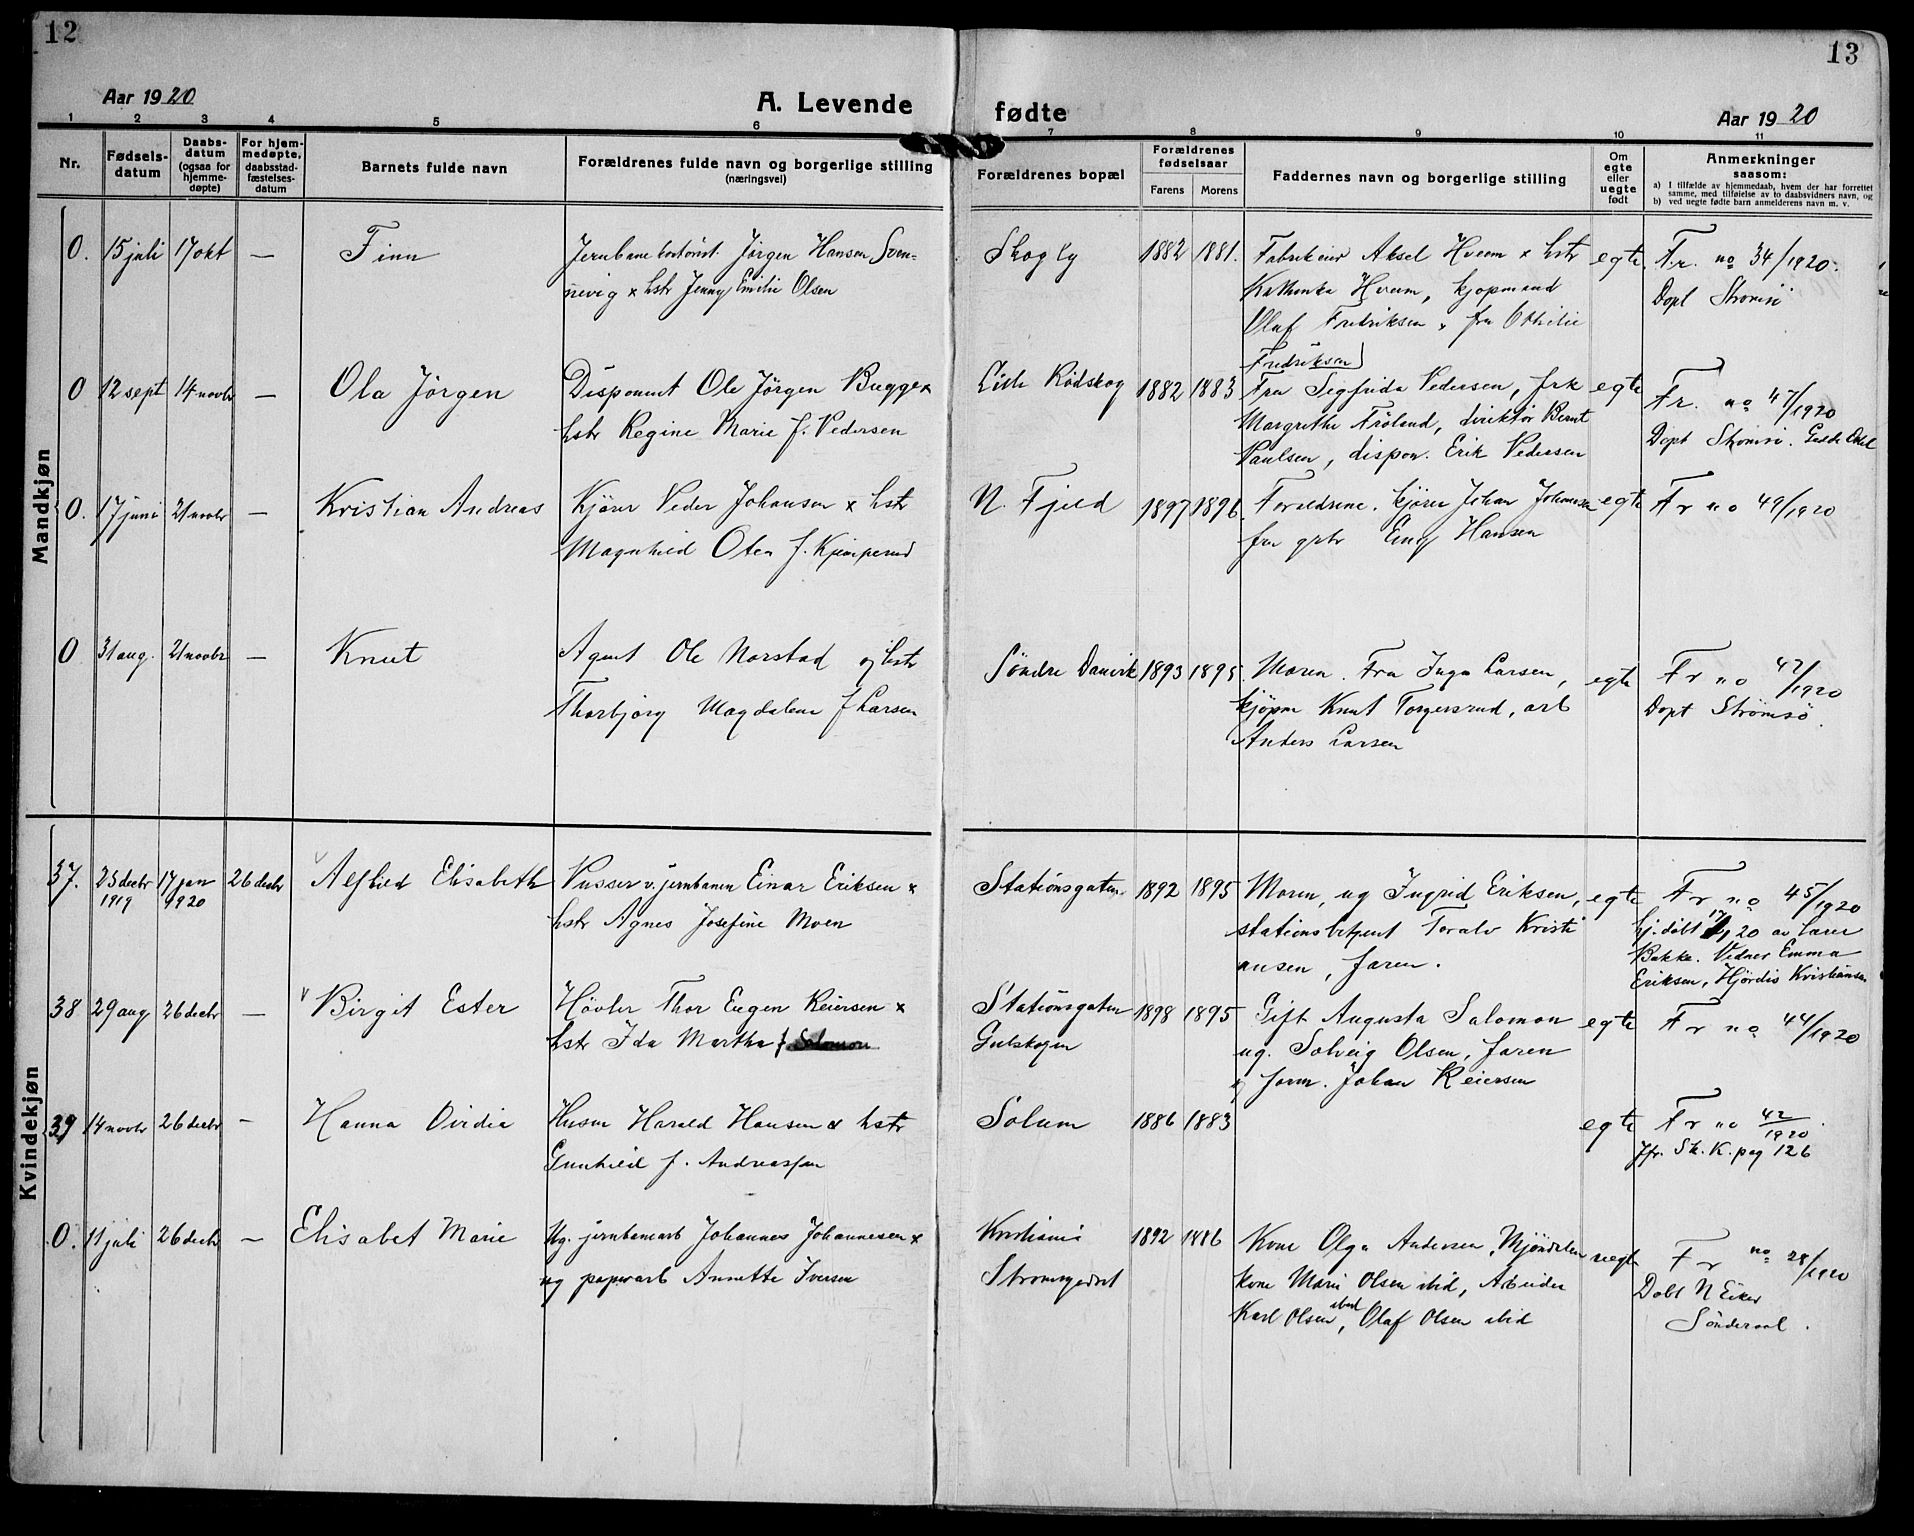 12
13
Aar 1920
A. Levende
fødte
Aar 1920
1 2 3 4 5 6 7 8 9 10 11
Nr.
Fødsels-
datum
Daabs-
datum
(ogsaa for
hjemme-
døpte)
For hjem-
medøpte,
daabsstad-
fæstelses-
datum
Barnets fulde navn
Forældrenes fulde navn og borgerlige stilling
(næringsvei)
Forældrenes bopæl
Forældrenes
fødselsaar
Farens
Morens
Faddernes navn og borgerlige stilling
Om
egte
eller
uegte
født
Anmerkninger
saasom:
a) I tilfælde av hjemmedaab, hvem der har forrettet
samme, med tilføielse av to daabsvidners navn, og
b) ved uegte fødte barn anmelderens navn m. v.
Mandkjøn
0. 15 juli 17 okt — Finn
Jernbanekontorist. Jørgen Hansen Sven-
nevig x hstr Jenny Emilie Olsen
Skogly 1882 1881.
Fabrikeier Aksel Hveem x hstr
Kathinka Hveem, kjøpmand
Olaf Fredriksen x fru Othilie
Fredriksen
egte
F.r. no 34/1920.
Døpt Strömsö
0 12 sept 14 novbr — Ola Jörgen
Disponent Ole Jörgen Bugge x
hstr Regine Marie f. Pedersen
Lille Rödskog 1882 1883
Fru Segfrida Pedersen, frk
Margrethe Fröland, direktör Bernt
Paulsen, dispon. Erik Pedersen
egte
F.r. no 47/1920
Döpt Strömsö.
0. 17 juni 21 novbr — Kristian Andreas
Kjører Peder Johansen x hstr
Magnhild Olsen f. Kjimperud
N. Fjeld 1897 1896
Forældrene. kjører Johan Johansen
fru grbr Emy Hansen
egte
Fr no 49/1920
0 31 aug. 21 novbr — Knut
Agent Ole Norstad og hstr
Thorbjørg Magdalene f Larsen
Söndre Danvik 1893 1895
Moren. Fru Inga Larsen,
kjøpm Knut Torgersrud, arb
Anders Larsen
egte
Fr no 42/1920
Döpt Strömsö.
Kvindekjøn
37. 23 decbr 1919 17 jan 1920 26 decbr Alfhild Elisabeth
Pusser v. jernbanen Einar Eriksen x
hstr Agnes Josefine Moen
Stationsgaten 1892 1895
Moren, ug Ingrid Eriksen,
stationsbetjent Toralv Kristi
ansen, faren.
egte
Fr no 45/1920
hj.döbt 17/1 20 av lærer
Bakke. Vidner Emma
Eriksen, Hjördis Kristiansen
38 29 aug 26 decbr — Birgit Ester
Høvler Thor Eugen Reiersen x
hstr Ida Martha f Salomon
Stationsgaten
Gulskogen
1898 1895
Gift Augusta Salomon
ug. Solveig Olsen, faren
og form. Johan Reiersen
egte
Fr no 44/1920
39 14 novbr 26 decbr — Hanna Ovidia
Husm Harald Hansen x hstr
Gunhild f. Andreassen
Solum 1886 1883
egte
Fr no 42/1920.
Jfr. Sk. K. pag 126
0. 11 juli 26 decbr — Elisabet Marie
Ug. jernbanearb Johannes Johannesen x
ug papirarb Annette Iversen
Kristiania
Strömsgodset
1892 1886
Kone Olga Andersen, Mjöndalen
kone Marie Olsen ibid, Arbeider
Karl Olsen ibid, Olaf Olsen ibid
uegte
Fr no 28/1920
Döbt N Eiker